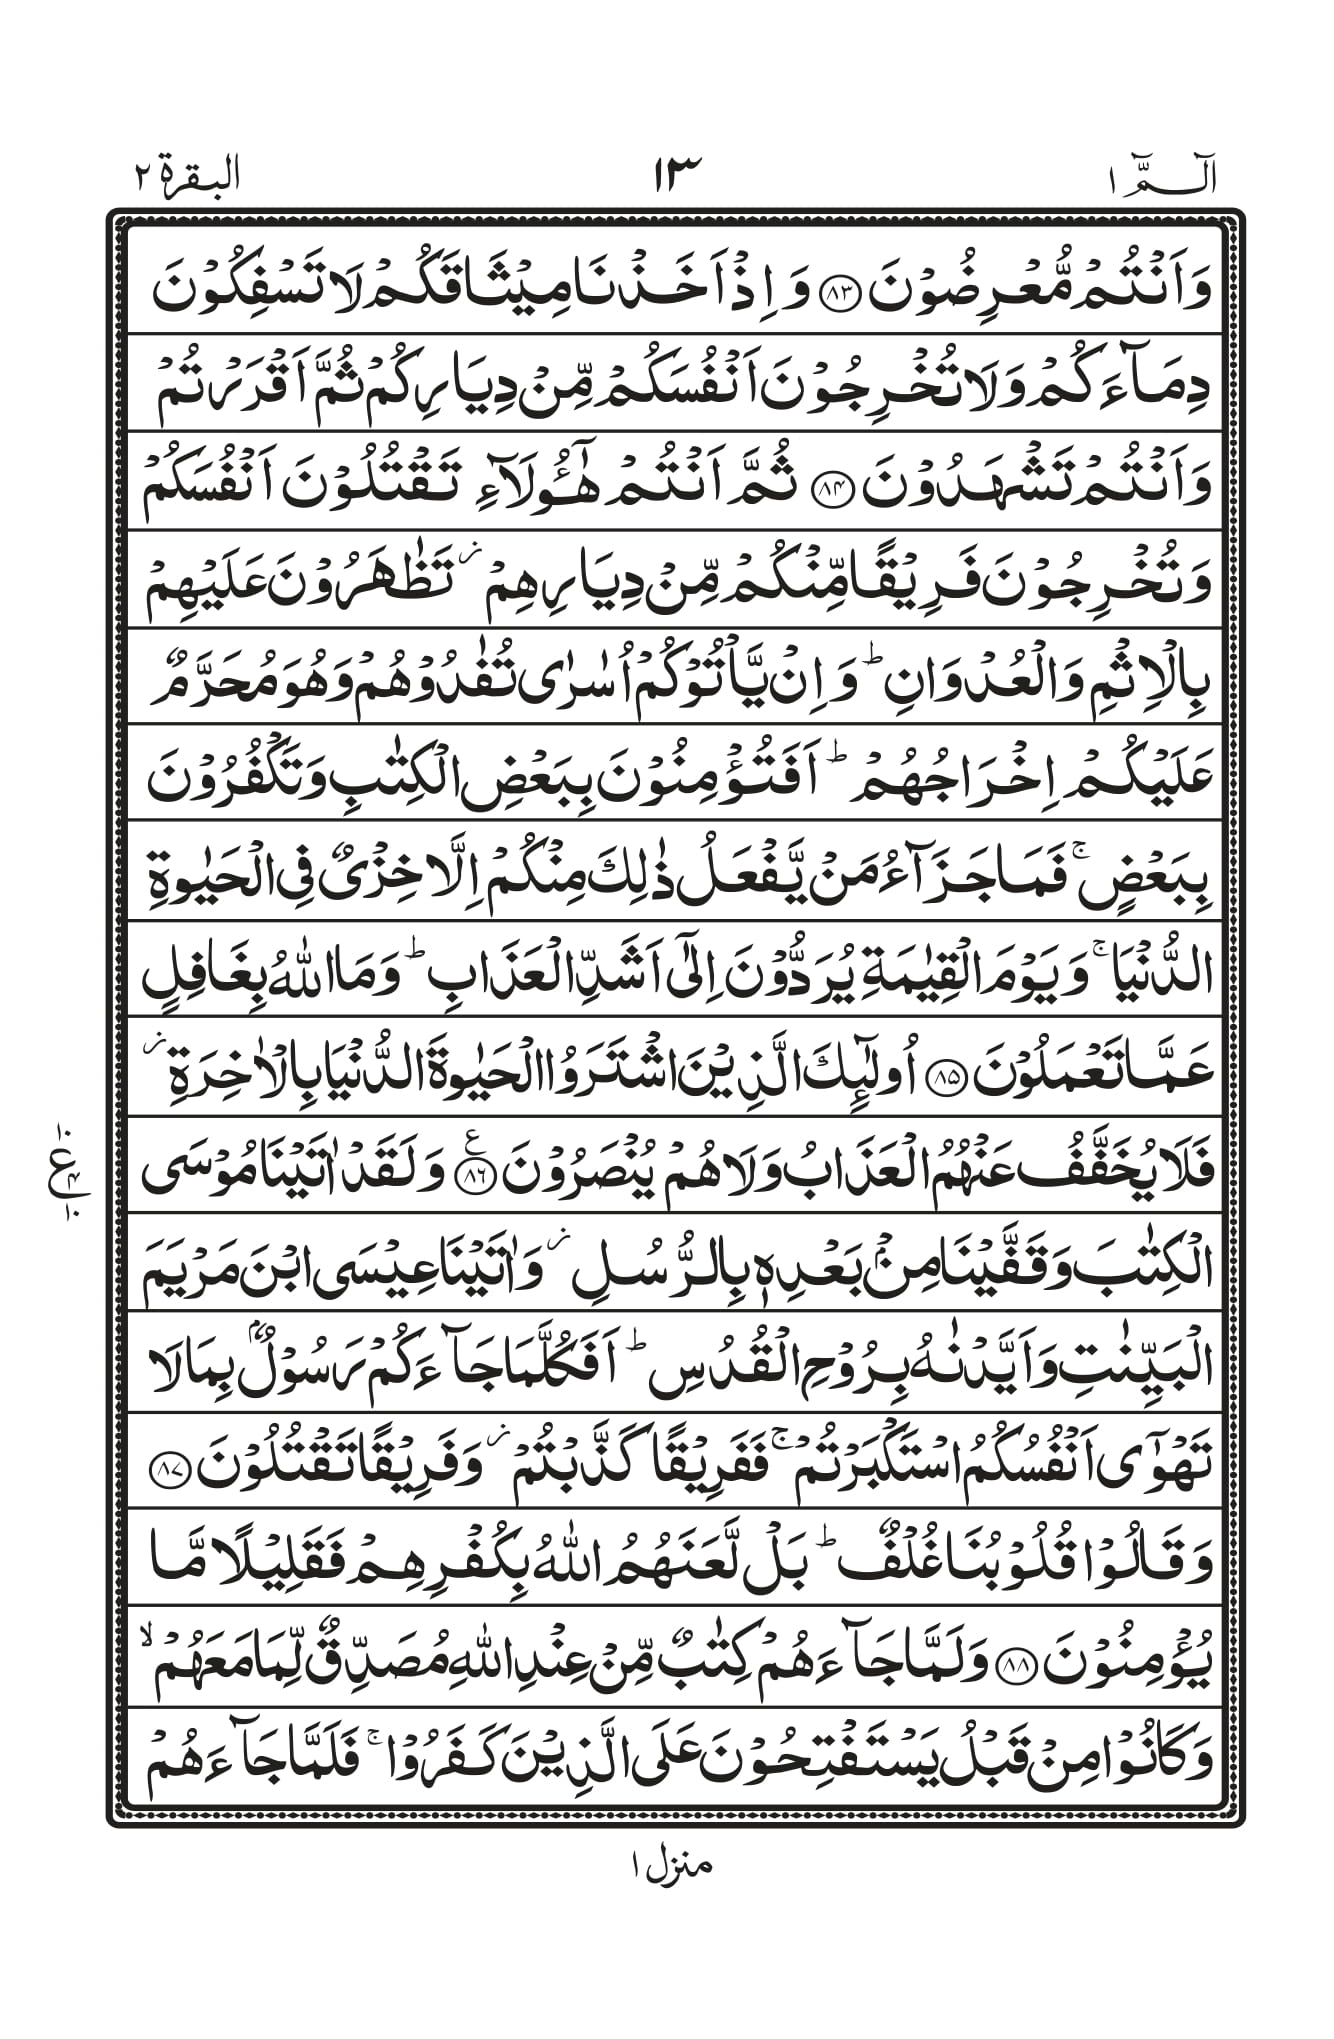 الٓـمّٓ ١
١٣
البقرة ٢
وَاَنْتُمْ مُّعْرِضُوْنَ ﴿٨٣﴾ وَ اِذْ اَخَذْنَا مِيْثَاقَكُمْ لَا تَسْفِكُوْنَ
دِمَآءَكُمْ وَلَا تُخْرِجُوْنَ اَنْفُسَكُمْ مِّنْ دِيَارِكُمْ ثُمَّ اَقْرَرْتُمْ
وَاَنْتُمْ تَشْهَدُوْنَ ﴿٨٤﴾ ثُمَّ اَنْتُمْ هٰٓؤُلَآءِ تَقْتُلُوْنَ اَنْفُسَكُمْ
وَتُخْرِجُوْنَ فَرِيْقًا مِّنْكُمْ مِّنْ دِيَارِهِمْ ز تَظٰهَرُوْنَ عَلَيْهِمْ
بِالْاِثْمِ وَالْعُدْوَانِ ط وَ اِنْ يَّاْتُوْكُمْ اُسٰرٰى تُفٰدُوْهُمْ وَهُوَ مُحَرَّمٌ
عَلَيْكُمْ اِخْرَاجُهُمْ ط اَفَتُؤْمِنُوْنَ بِبَعْضِ الْكِتٰبِ وَتَكْفُرُوْنَ
بِبَعْضٍ ج فَمَا جَزَآءُ مَنْ يَّفْعَلُ ذٰلِكَ مِنْكُمْ اِلَّا خِزْىٌ فِى الْحَيٰوةِ
الدُّنْيَا ج وَيَوْمَ الْقِيٰمَةِ يُرَدُّوْنَ اِلٰٓى اَشَدِّ الْعَذَابِ ط وَمَا اللهُ بِغَافِلٍ
عَمَّا تَعْمَلُوْنَ ﴿٨٥﴾ اُولٰٓئِكَ الَّذِيْنَ اشْتَرَوُا الْحَيٰوةَ الدُّنْيَا بِالْاٰخِرَةِ ز
فَلَا يُخَفَّفُ عَنْهُمُ الْعَذَابُ وَلَا هُمْ يُنْصَرُوْنَ ﴿٨٦﴾ ع وَلَقَدْ اٰتَيْنَا مُوْسَى
١٠
ع
٤
١٠
الْكِتٰبَ وَقَفَّيْنَا مِنْۢ بَعْدِهٖ بِالرُّسُلِ ز وَاٰتَيْنَا عِيْسَى ابْنَ مَرْيَمَ
الْبَيِّنٰتِ وَاَيَّدْنٰهُ بِرُوْحِ الْقُدُسِ ط اَفَكُلَّمَا جَآءَكُمْ رَسُوْلٌۢ بِمَا لَا
تَهْوٰٓى اَنْفُسُكُمُ اسْتَكْبَرْتُمْ ج فَفَرِيْقًا كَذَّبْتُمْ ز وَفَرِيْقًا تَقْتُلُوْنَ ﴿٨٧﴾
وَقَالُوْا قُلُوْبُنَا غُلْفٌ ط بَلْ لَّعَنَهُمُ اللهُ بِكُفْرِهِمْ فَقَلِيْلًا مَّا
يُؤْمِنُوْنَ ﴿٨٨﴾ وَلَمَّا جَآءَهُمْ كِتٰبٌ مِّنْ عِنْدِ اللهِ مُصَدِّقٌ لِّمَا مَعَهُمْ لا
وَكَانُوْا مِنْ قَبْلُ يَسْتَفْتِحُوْنَ عَلَى الَّذِيْنَ كَفَرُوْا ج فَلَمَّا جَآءَهُمْ
منزل ١